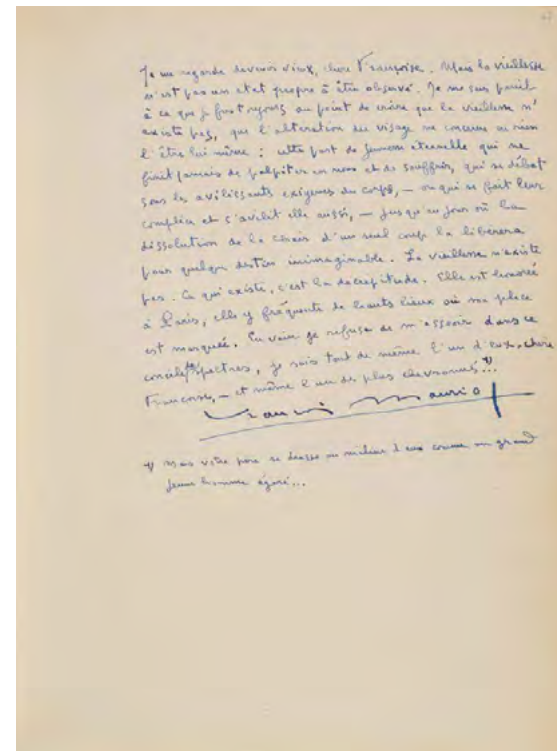 Je me regarde devenir vieux, chère Françoise. Mais la vieillesse
n'est pas un état propre à être observé. Je me sens pareil
à ce que je fus toujours au point de croire que la vieillesse n'
existe pas, que l'altération du visage ne concerne en rien
l'être lui-même : cette part de jeunesse éternelle qui ne
finit jamais de palpiter en nous et de souffrir, qui se débat
sous les avilissants exigences du corps, — ou qui se fait leur
complice et s'avilit elle aussi, — jusqu'au jour où la
dissolution de la chair d'un seul coup la libérera
pour quelque destin inimaginable. La vieillesse n'existe
pas. Ce qui existe, c'est la décrépitude. Elle est honorée
à Paris, elle y fréquente de hauts lieux où ma place
est marquée. En vain je refuse de m'asseoir dans ce
concile de spectres, je suis tout de même l'un d'eux, chère
Françoise, — et même l'un des plus chevronnés (1)...
François Mauriac
(1) Mais votre père se dresse au milieu d'eux comme un grand
jeune homme égaré...